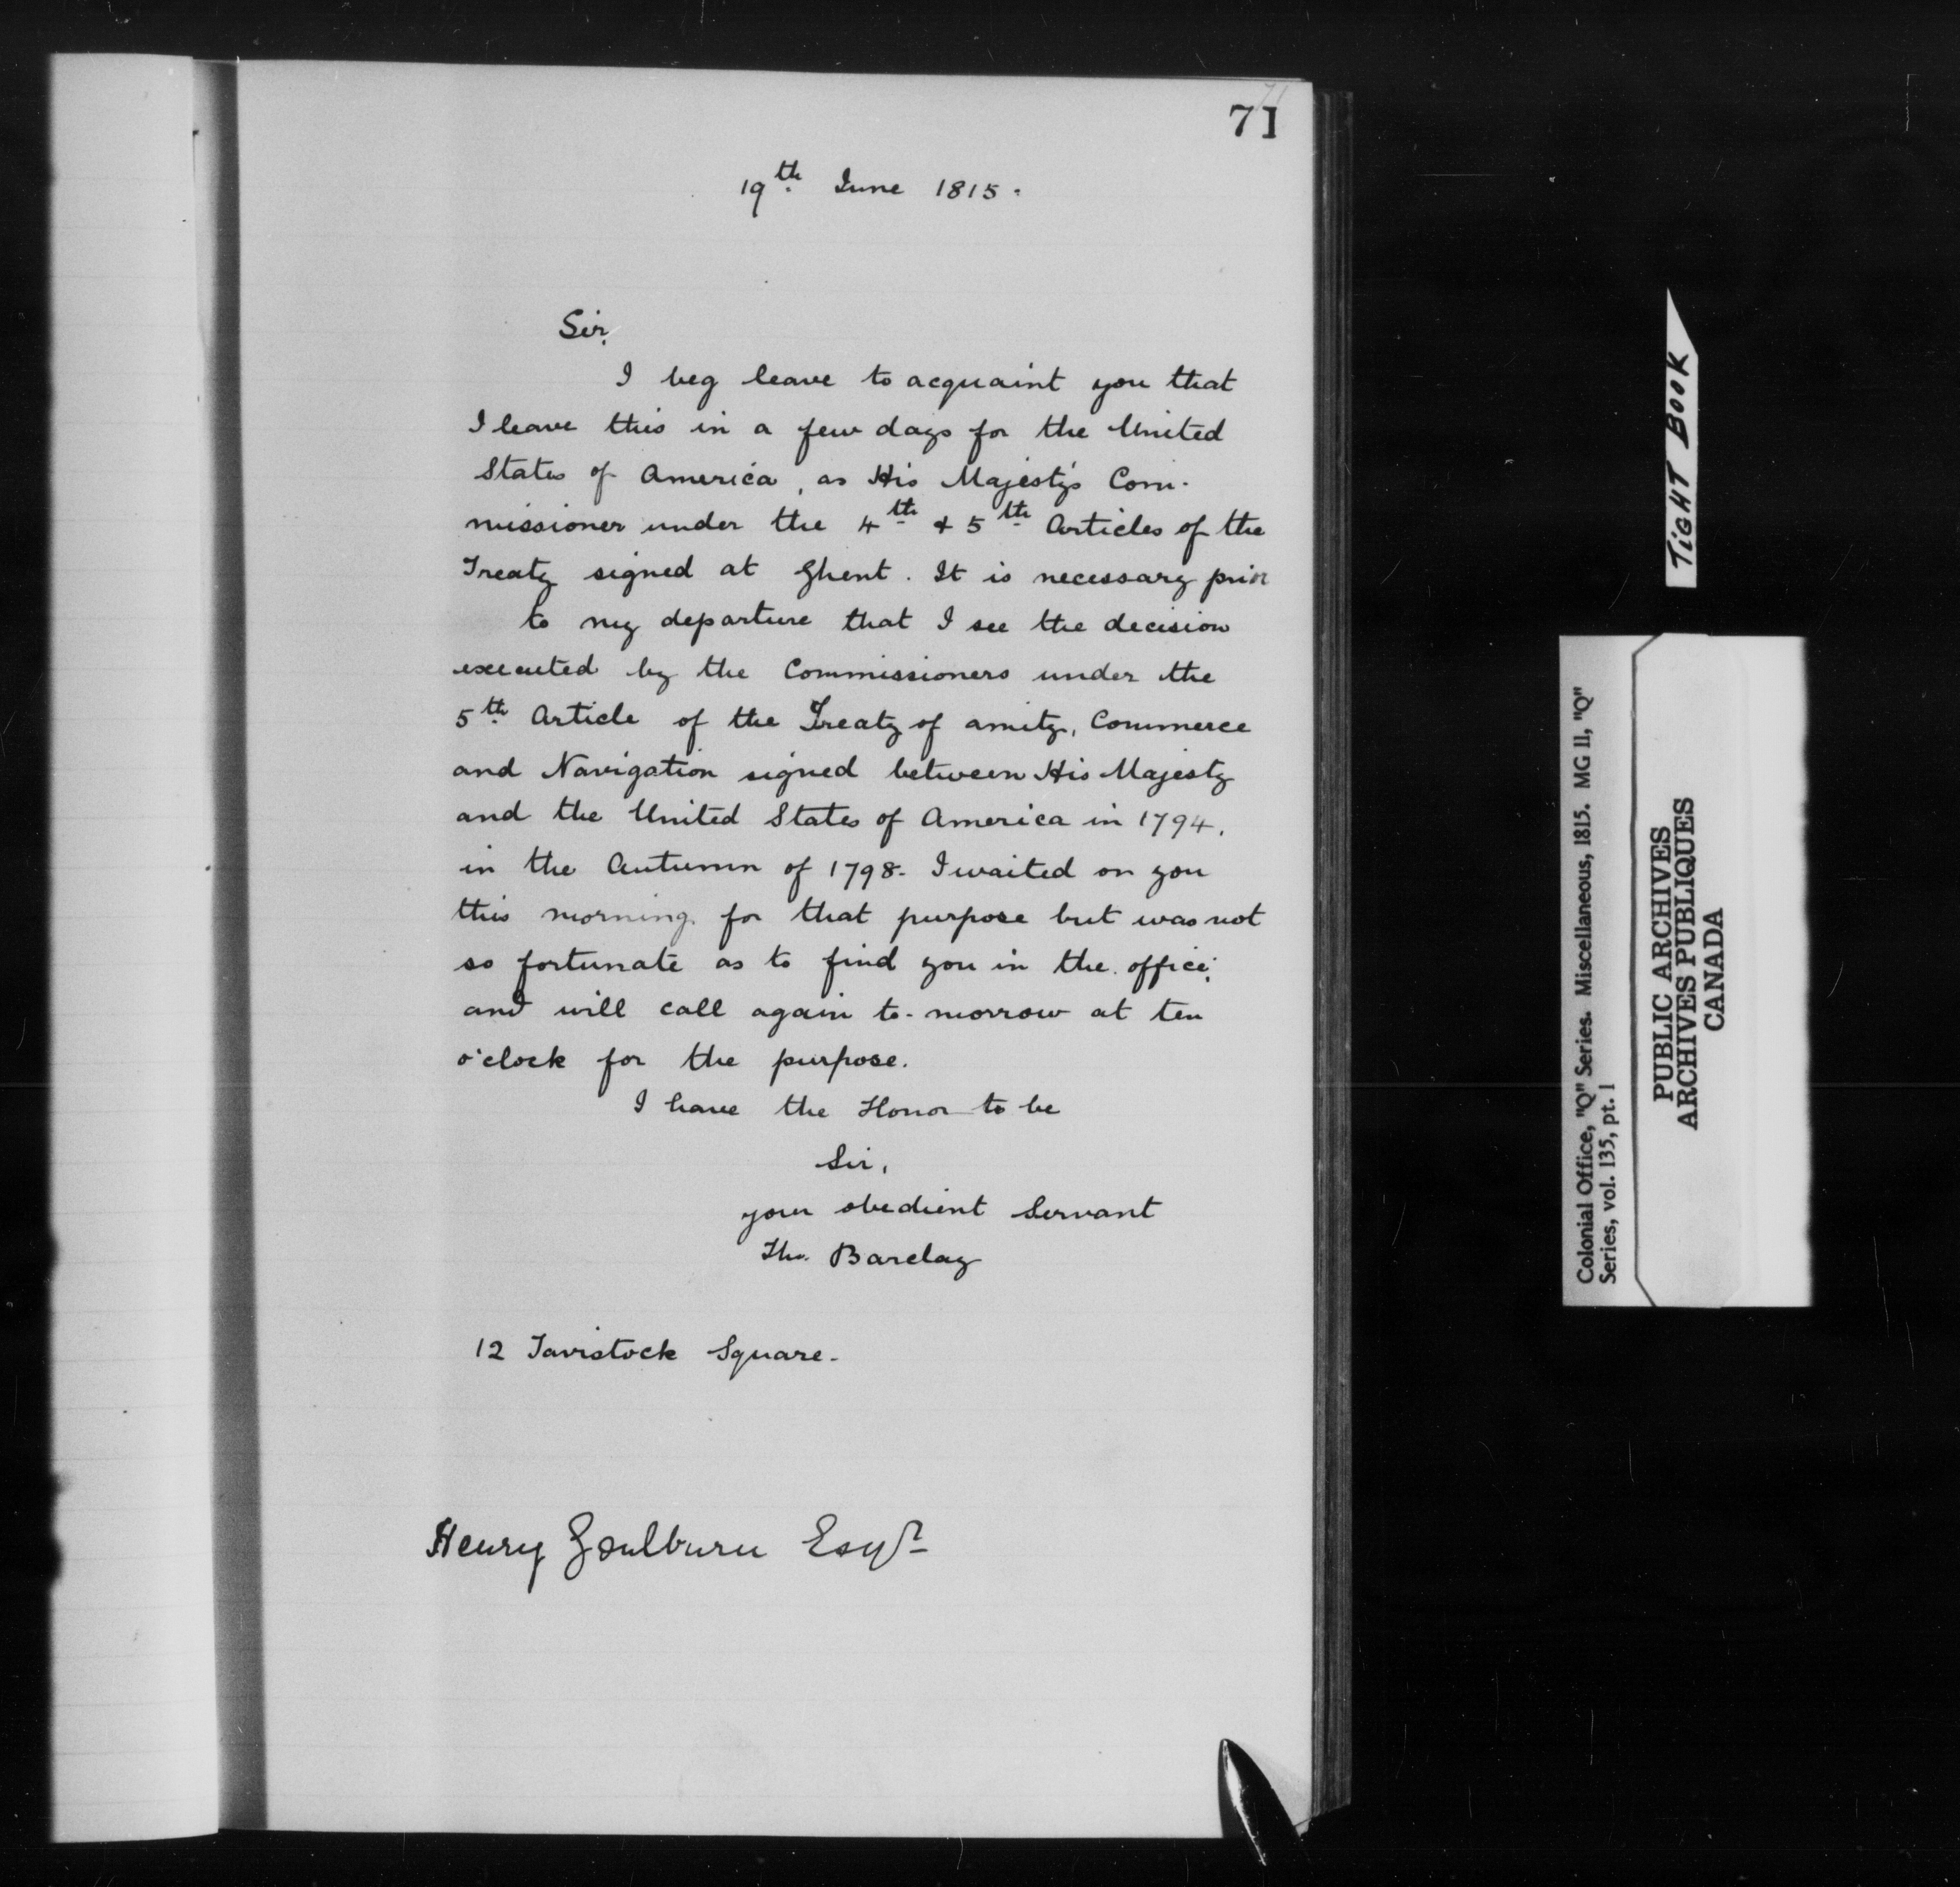 71
19th June 1815.
Sir,
I beg leave to acquaint you that
I leave this in a few days for the United
States of America, as His Majesty's Com-
missioner under the 4th & 5th Articles of the
Treaty signed at Ghent. It is necessary prior
to my departure that I see the decision
executed by the Commissioners under the
5th Article of the Treaty of amity, Commerce
and Navigation signed between His Majesty
and the United States of America in 1794,
in the Autumn of 1798. I waited on you
this morning for that purpose but was not
so fortunate as to find you in the office;
and will call again to-morrow at ten
o'clock for the purpose.
I have the Honor to be
Sir,
your obedient Servant
Tho. Barclay
12 Tavistock Square.
Henry Goulburn Esqr
TIGHT BOOK
Colonial Office, "Q" Series. Miscellaneous, 1815. MG 11, "Q"
Series, vol. 135, pt. 1
PUBLIC ARCHIVES
ARCHIVES PUBLIQUES
CANADA